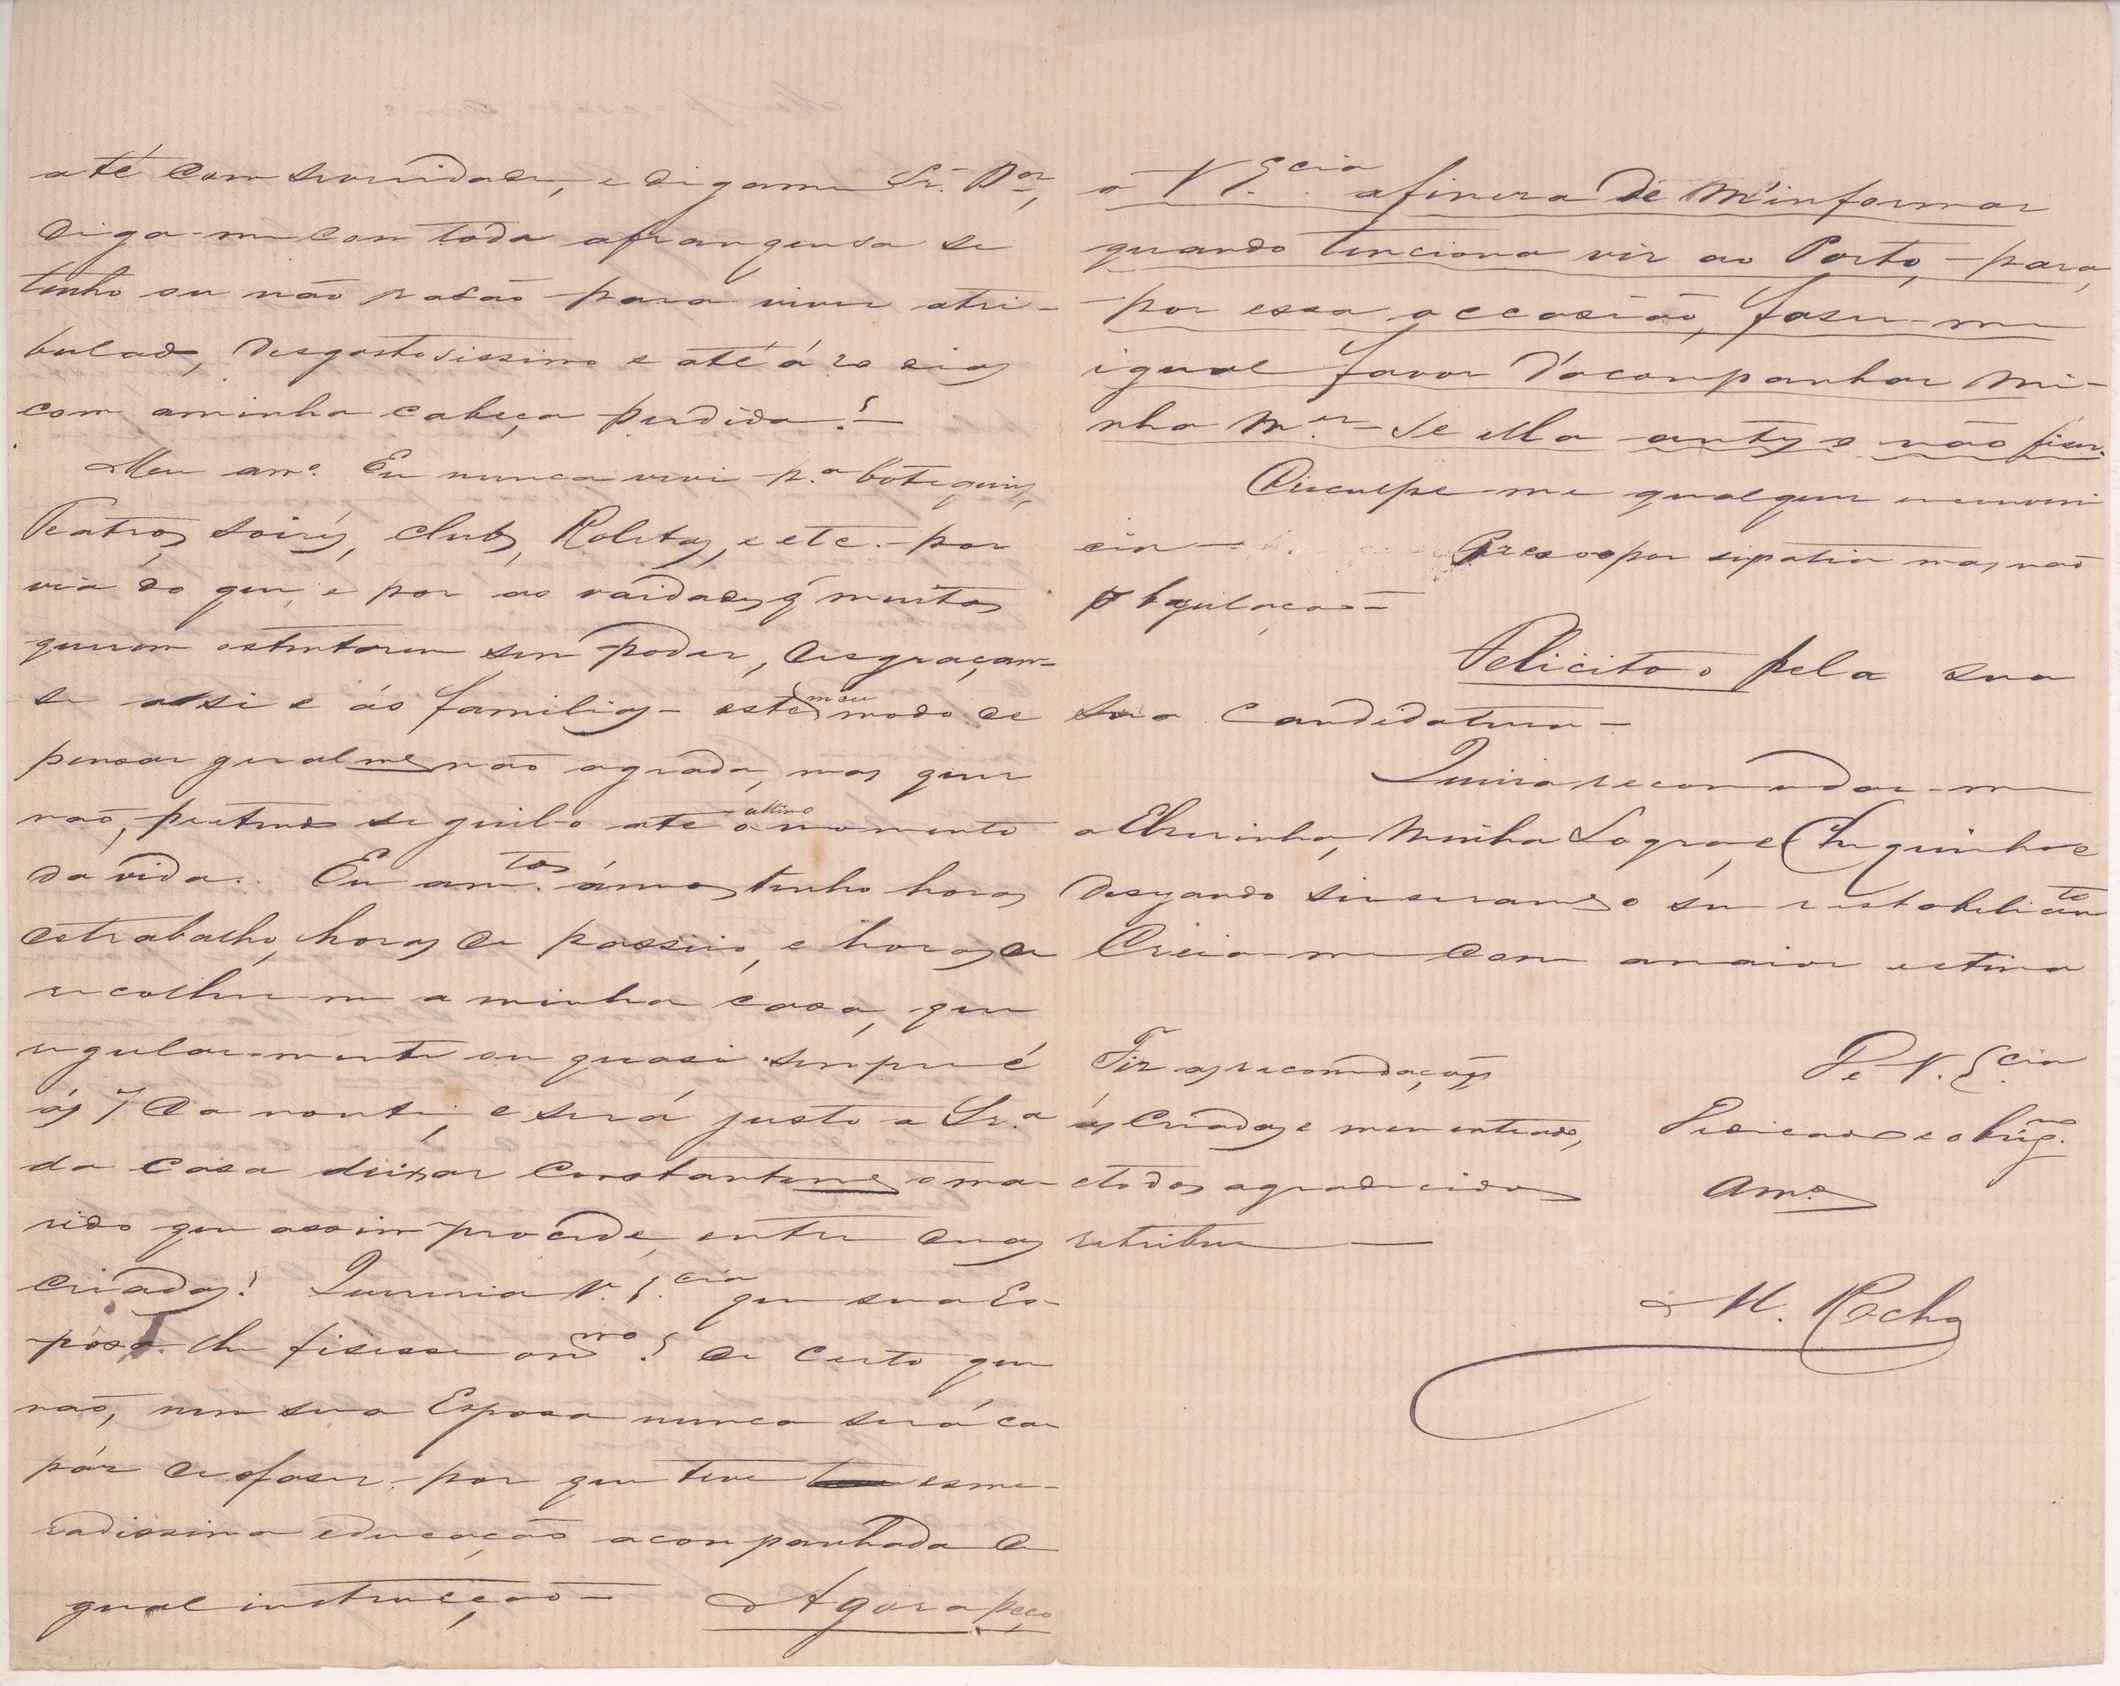 até com severidade, e digame Sr. Dor,
diga-me com toda afranquesa se
tenho ou não rasão para viver atri-
bulado, desgostosissimo e até ás
com aminha cabeça perdida?-
Meu amo. Eu nunca vivi pa. botequins,
Teatros, soirés, clubs, Roletas, e etc.- por
via do que, e por as vaidades q' muitos
querem ostentarem sem poder, desgraçam-
se assi e ás familias- este meu modo de
pensar geralme não agrada, mas quer
não, pretendo seguilo até o ultimo momento
da vida. Eu tenho horas
detrabalho, horas de passeio, e horas de
recolher-me a minha casa, que
regular-mente ou quasi sempre é
ás 7 da noute, e será justo a Sra.
da casa deixar constanteme o ma-
rido que assim procede, entre duas
criadas? Quereria V. Ecia que sua Es-
posa lhe fisesse omo? de certo que
não, nem sua Esposa nunca será ca-
páz de ofaser, por que teve esme-
radissima educação acompanhada de
gual instrucção- Agora peço
a V Ecia. afineza de m'informar
quando tenciona vir ao Porto, para,
por essa occasião, faser-me
igual favor d'acompanhar mi-
nha Mer- se ella antes o não fiser.
Disculpe-me qualquer inconveni
encia- por sipatia mas não
Felicito o pela sua
sua candidatura-
Queira recomendar-me
a Elzirinha, Minha Sogra, e Chiquinho e
desejando sinserame o seu restabelicimto
Creia-me com amaior estima
Fiz as recomendações
De V. Ecia
ás Criadas e meu enteado,
Dedicado e obrigno.
etodos agradecidos
Amo
retribue
M. Rocha